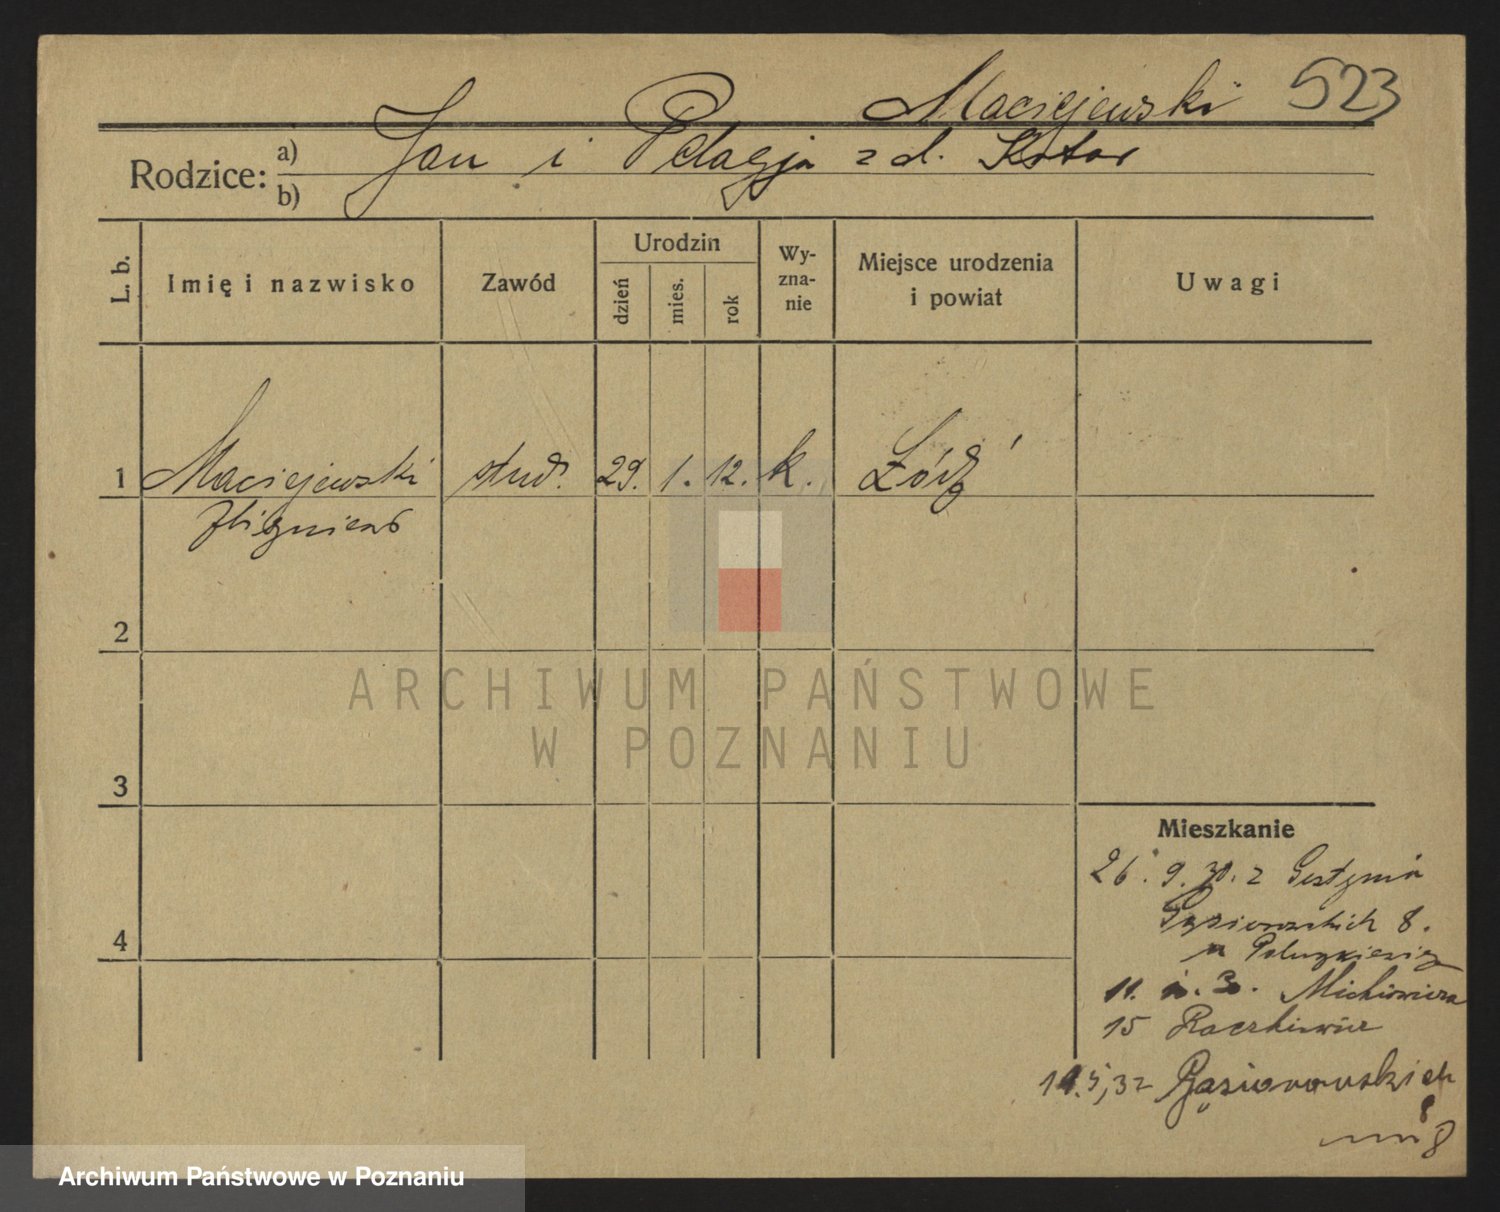 Maciejewski 523
Rodzice: a) Jan i Pelagja z d. Kotar
b)
L. b. Imię i nazwisko Zawód Urodzin dzień mies. rok Wy-zna-nie Miejsce urodzenia i powiat Uwagi
1 Maciejewski stud. 29. 1. 12. k. Łódź
Zbigniew
2
ARCHIWUM PAŃSTWOWE
W POZNANIU
3
Mieszkanie
26. 9. 30. z Gostynia
Gąsiorowskich 8.
4
u
11. 3. Mickiewicza
15 Raczkiewicz
5, 32 Gąsiorowskich
8
8
Archiwum Państwowe w Poznaniu